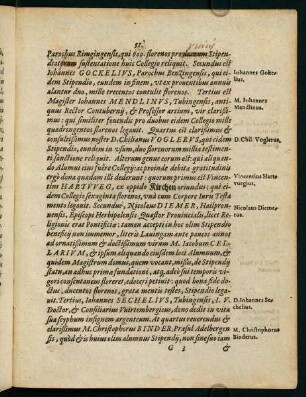 Parochus Rimelingensis, qui 600. florenos
sustentatione huic Collegio reliquit. Secundus est
Iohannes GOCKELIVS, Parochus Benzingensis, qui eidem
dem Stipendio, eundem in finem, vt ex prouentibus annuis
alantur duo, mille trecentos contulit florenos. Tertius est
Magister Iohannes MENDLINVS, Tubingensis, antiquus
Rector Contubernij, & Professor artium, vir clarissimus:
qui similiter fruendis pro duobus eidem Collegio mille
quadringentos florenos legauit. Quartus est clarissimus &
consultissimus Dominus D. Chilianus VOGLERVS, qui eidem
Stipendio, eundem in vsum, duos florenorum millia
reliquit. Alterum genus eorum est: qui aliquando
Alumni eius fuêre Collegij: ac proinde debita gratitudinis
ergo dona quædam ei dederunt: quorum primus est Vincentius
HARTVVEG, ex oppido Kirchen oriundus: qui eidem
Collegio sexaginta florenos, vnà cum Corpore Iuris Testamento
legauit. Secundus, Nicolaus DIEMER, Hailpronensis,
Episcopi Herbipolensis Quæstor Prouincialis, licet Religionis
erat Pontificiæ: tamen accepti in eodem Stipendio
beneficij non immemor, literis Lauingam ante paucos annos
ad ornatissimum & doctissimum virum M. Iacobum CELLARIVM,
& ipsum aliquando eiusdem loci Alumnum, &
quidem Magistrum domus, quem vocant, missis, de Stipendij
statu, an adhuc prima fundationi, atq. adeo sui temporis vigori
consentaneus foret, quæsiuit. Qui cum bona fide
doctus, ducentos florenos, grata mentis testes, Stipendio legauit.
Tertius, Iohannes SECHELIVS, Tubingensis, I. V.
Doctor, & Consiliarius Würtembergicus, deno dedit in vita
sua scyphum insignem argenteum. At quartus venerandus &
clarissimus M. Christophorus BINDER, Præsul Adelbergensis,
quod & is huius olim alumnus Stipendij, non sine suis iam
G 3 &
Iohannes Gockelius.
M. Iohannes
Mendlinus.
D. Chil. Voglerus.
Vincentius Hartvvegius.
Nicolaus Diemerus.
D. Iohannes Sechelius.
M. Christophorus
Binderus.